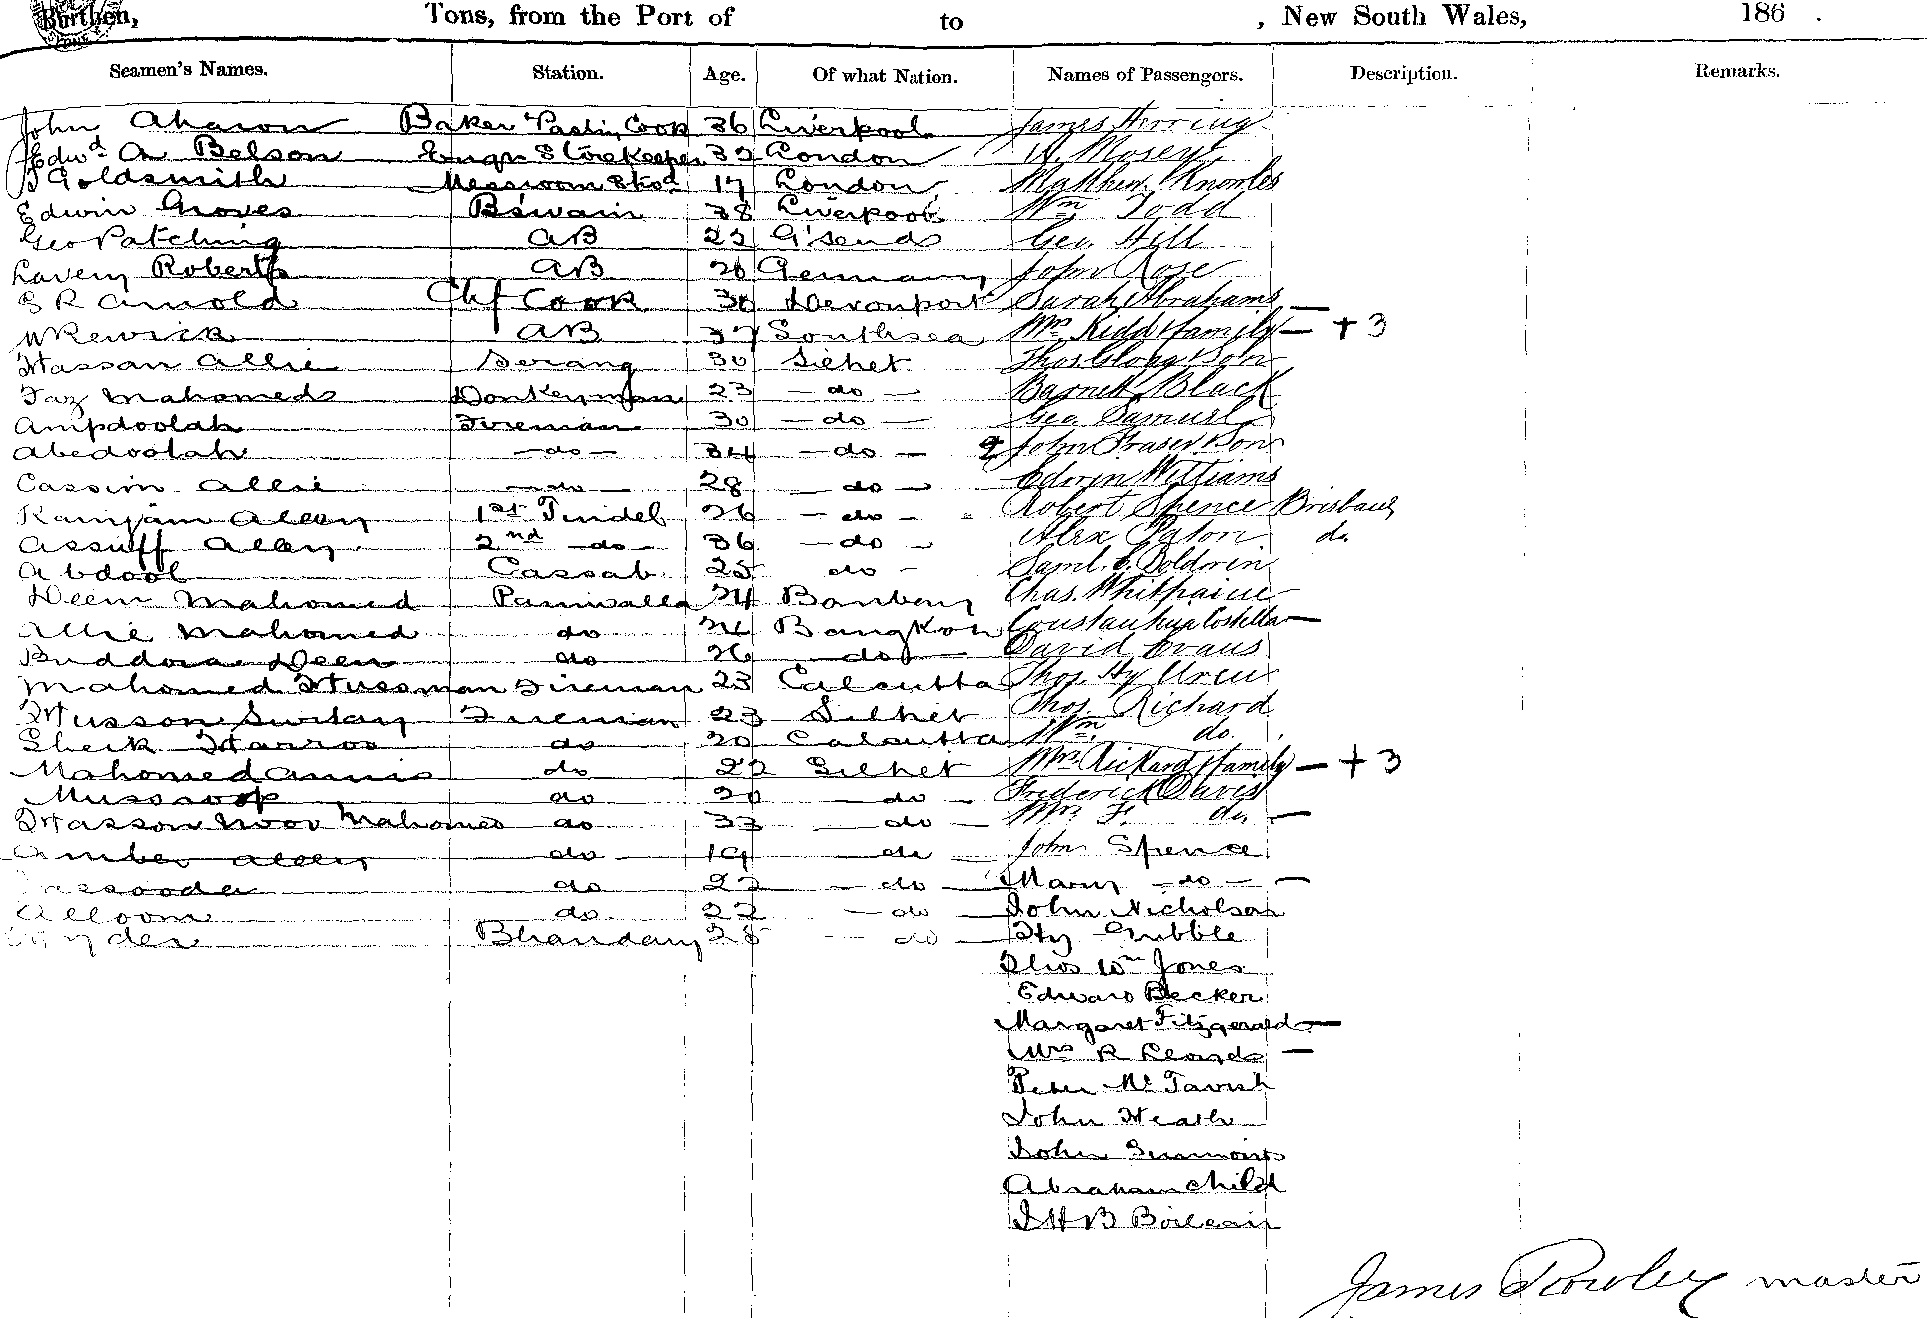 Burthen, Tons, from the Port of to , New South Wales, 186 .
Seamen's Names. Station. Age. Of what Nation. Names of Passengers. Description. Remarks.
John Aharon Baker & Pastry Cook 36 Liverpool James Herring
Edwd A Belson Engr Storekeeper 32 London Moser
Goldsmith Messroom Std 17 London Matthew Knowles
Edwin Groves B'swain 38 Liverpool Wm Todd
Geo Patching AB 23 G'send Geo. Hill
Roberts AB 26 Germany John Rose
Arnold Chf Cook 30 Devonport Sarah Abrahams —
W Rewrick AB 37 Southsea Mrs Kidd & family — + 3
Hassan Allie Serang 30 Silhet Thos
Taz Mahomed Donkeyman 23 — do — Barnett Black
Ampdoolah Fireman 30 — do — Geo. Samuel
Abedoolah — do — 34 — do — John Fraser
Cassim Allie — do — 28 — do — Edwin Williams
Ramjam Alley 1st Tindel 26 — do — Robert Spence Brisbane
Assuff Alley 2nd — do — 36 — do — Alex Paton do.
Abdool Cassab 25 do — Saml. Boldwin
Deen Mahomed Paniwalla 24 Bombay Chas. Whitpaine
Allie Mahomed do 24 Constantina Costella —
Buddora Deen do 26 — do — David Evans
Mahomed Hussman Fireman 23 Calcutta Thos. Hy Uren
Husson Surtay Fireman 23 Silhet Thos. Richard
Sheik do 20 Calcutta Wm. do.
Mahomed Annis do 22 Silhet Mrs Rickard & family — + 3
Mussroop do 20 — do — Frederick Davis
Hasson Noor Mahomed do 33 — do — Mrs F. do. —
Amber Alley do 19 — do — John Spence
do 22 — do — Mary — do — —
Alloom do 22 — do — John Nicholson
Bhandary 25 — do — Hy Gribble
Thos Wm Jones
Edward Becker
Margaret Fitzgerald —
Mrs R —
Peter McTavish
John Heath
John Simmons
Abraham Child
J H B Boileau
James Rowley master